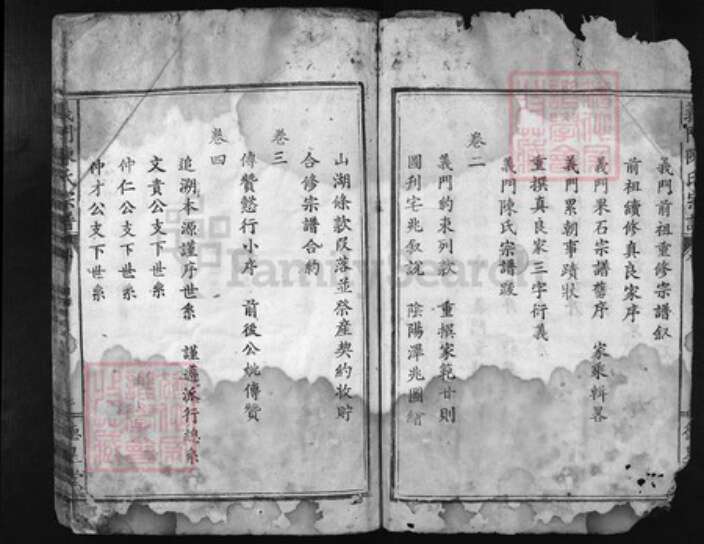 義門前祖重修宗譜叙
前祖續修真良家序
義門果石宗譜舊序 家乘輯畧
義門累朝事蹟狀
重撰真良家三字衍義
義門陳氏宗譜跋
卷二
義門約束列款 重撰家範廿則
圖刋宅兆叙說 陰陽澤兆圖繪
山湖條款叚落並祭產契約收貯
合修宗譜合約
卷三
傳贊懿行小序 前後公妣傳贊
卷四
追溯本源謹序世系 謹遵派行總系
文貴公支下世系
仲仁公支下世系
仲才公支下世系
義門陳氏宗譜
FamilySearch